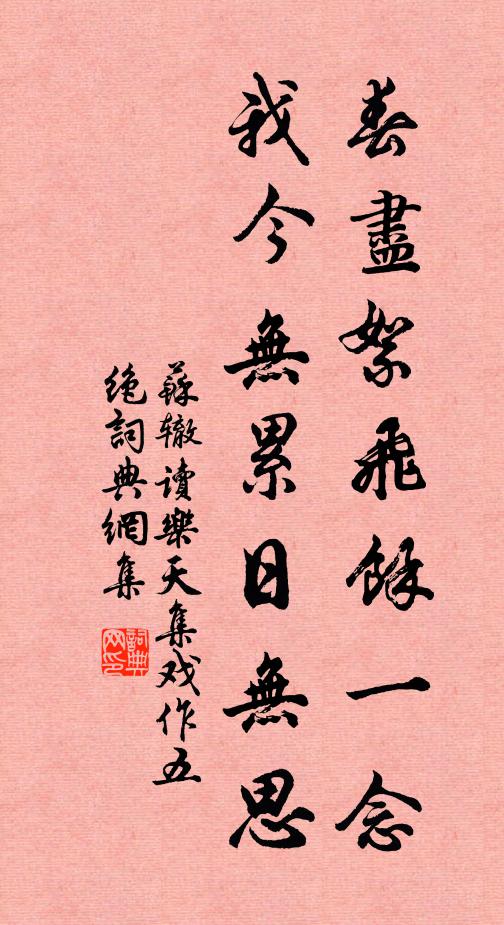 春盡絮飛餘一念
我今無累日無思
蘇辙讀樂天集戏作五
绝詞典網集
詞典網印